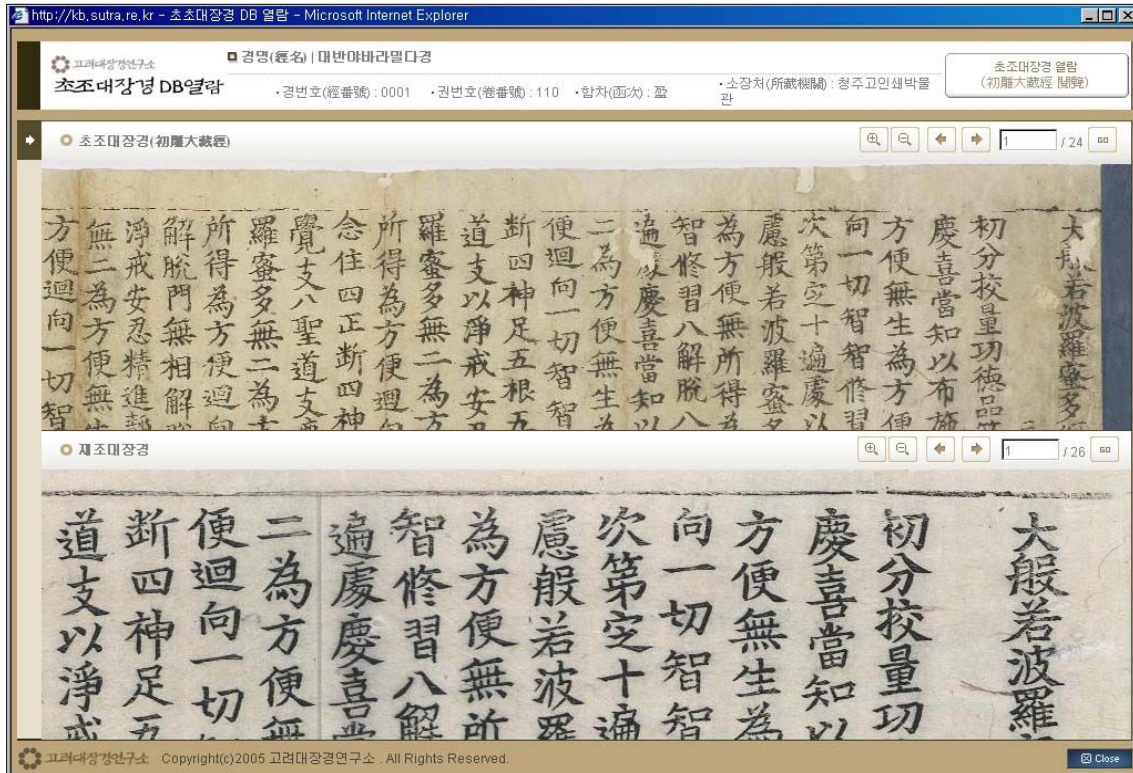 http://kb.sutra.re.kr - 초조대장경 DB 열람 - Microsoft Internet Explorer
고려대장경연구소
초조대장경 DB열람
경명(經名) | 대반야바라밀다경
·경번호(經番號) : 0001 ·권번호(卷番號) : 110 ·함차(函次) : 盈 ·소장처(所藏機關) : 청주고인쇄박물관
초조대장경 열람
(初雕大藏經 閱覽)
초조대장경(初雕大藏經)
1 / 24 GO
大般若波羅蜜多
初分校量功德品第
慶喜當知以布施
方便無生為方便
向一切智智修習
次第定十遍處以
慮般若波羅蜜多
為方便無所得為
智修習八解脫八
遍處慶喜當知以
二為方便無生為
便迴向一切智智
断四神足五根五
道支以淨戒安忍
羅蜜多無二為方
所得為方便迴向
念住四正断四神
覺支八聖道支慶
羅蜜多無二為方
所得為方便迴向
解脫門無相解脫
淨戒安忍精進靜
無二為方便無生
方便迴向一切智
재조대장경
1 / 26 GO
大般若波羅
初分校量功
慶喜當知以
方便無生為
向一切智智
次第定十遍
慮般若波羅
為方便無所
智修習八解
遍處慶喜當
二為方便無
便迴向一切
断四神足五
道支以淨戒
고려대장경연구소 Copyright(c)2005 고려대장경연구소 . All Rights Reserved.
Close